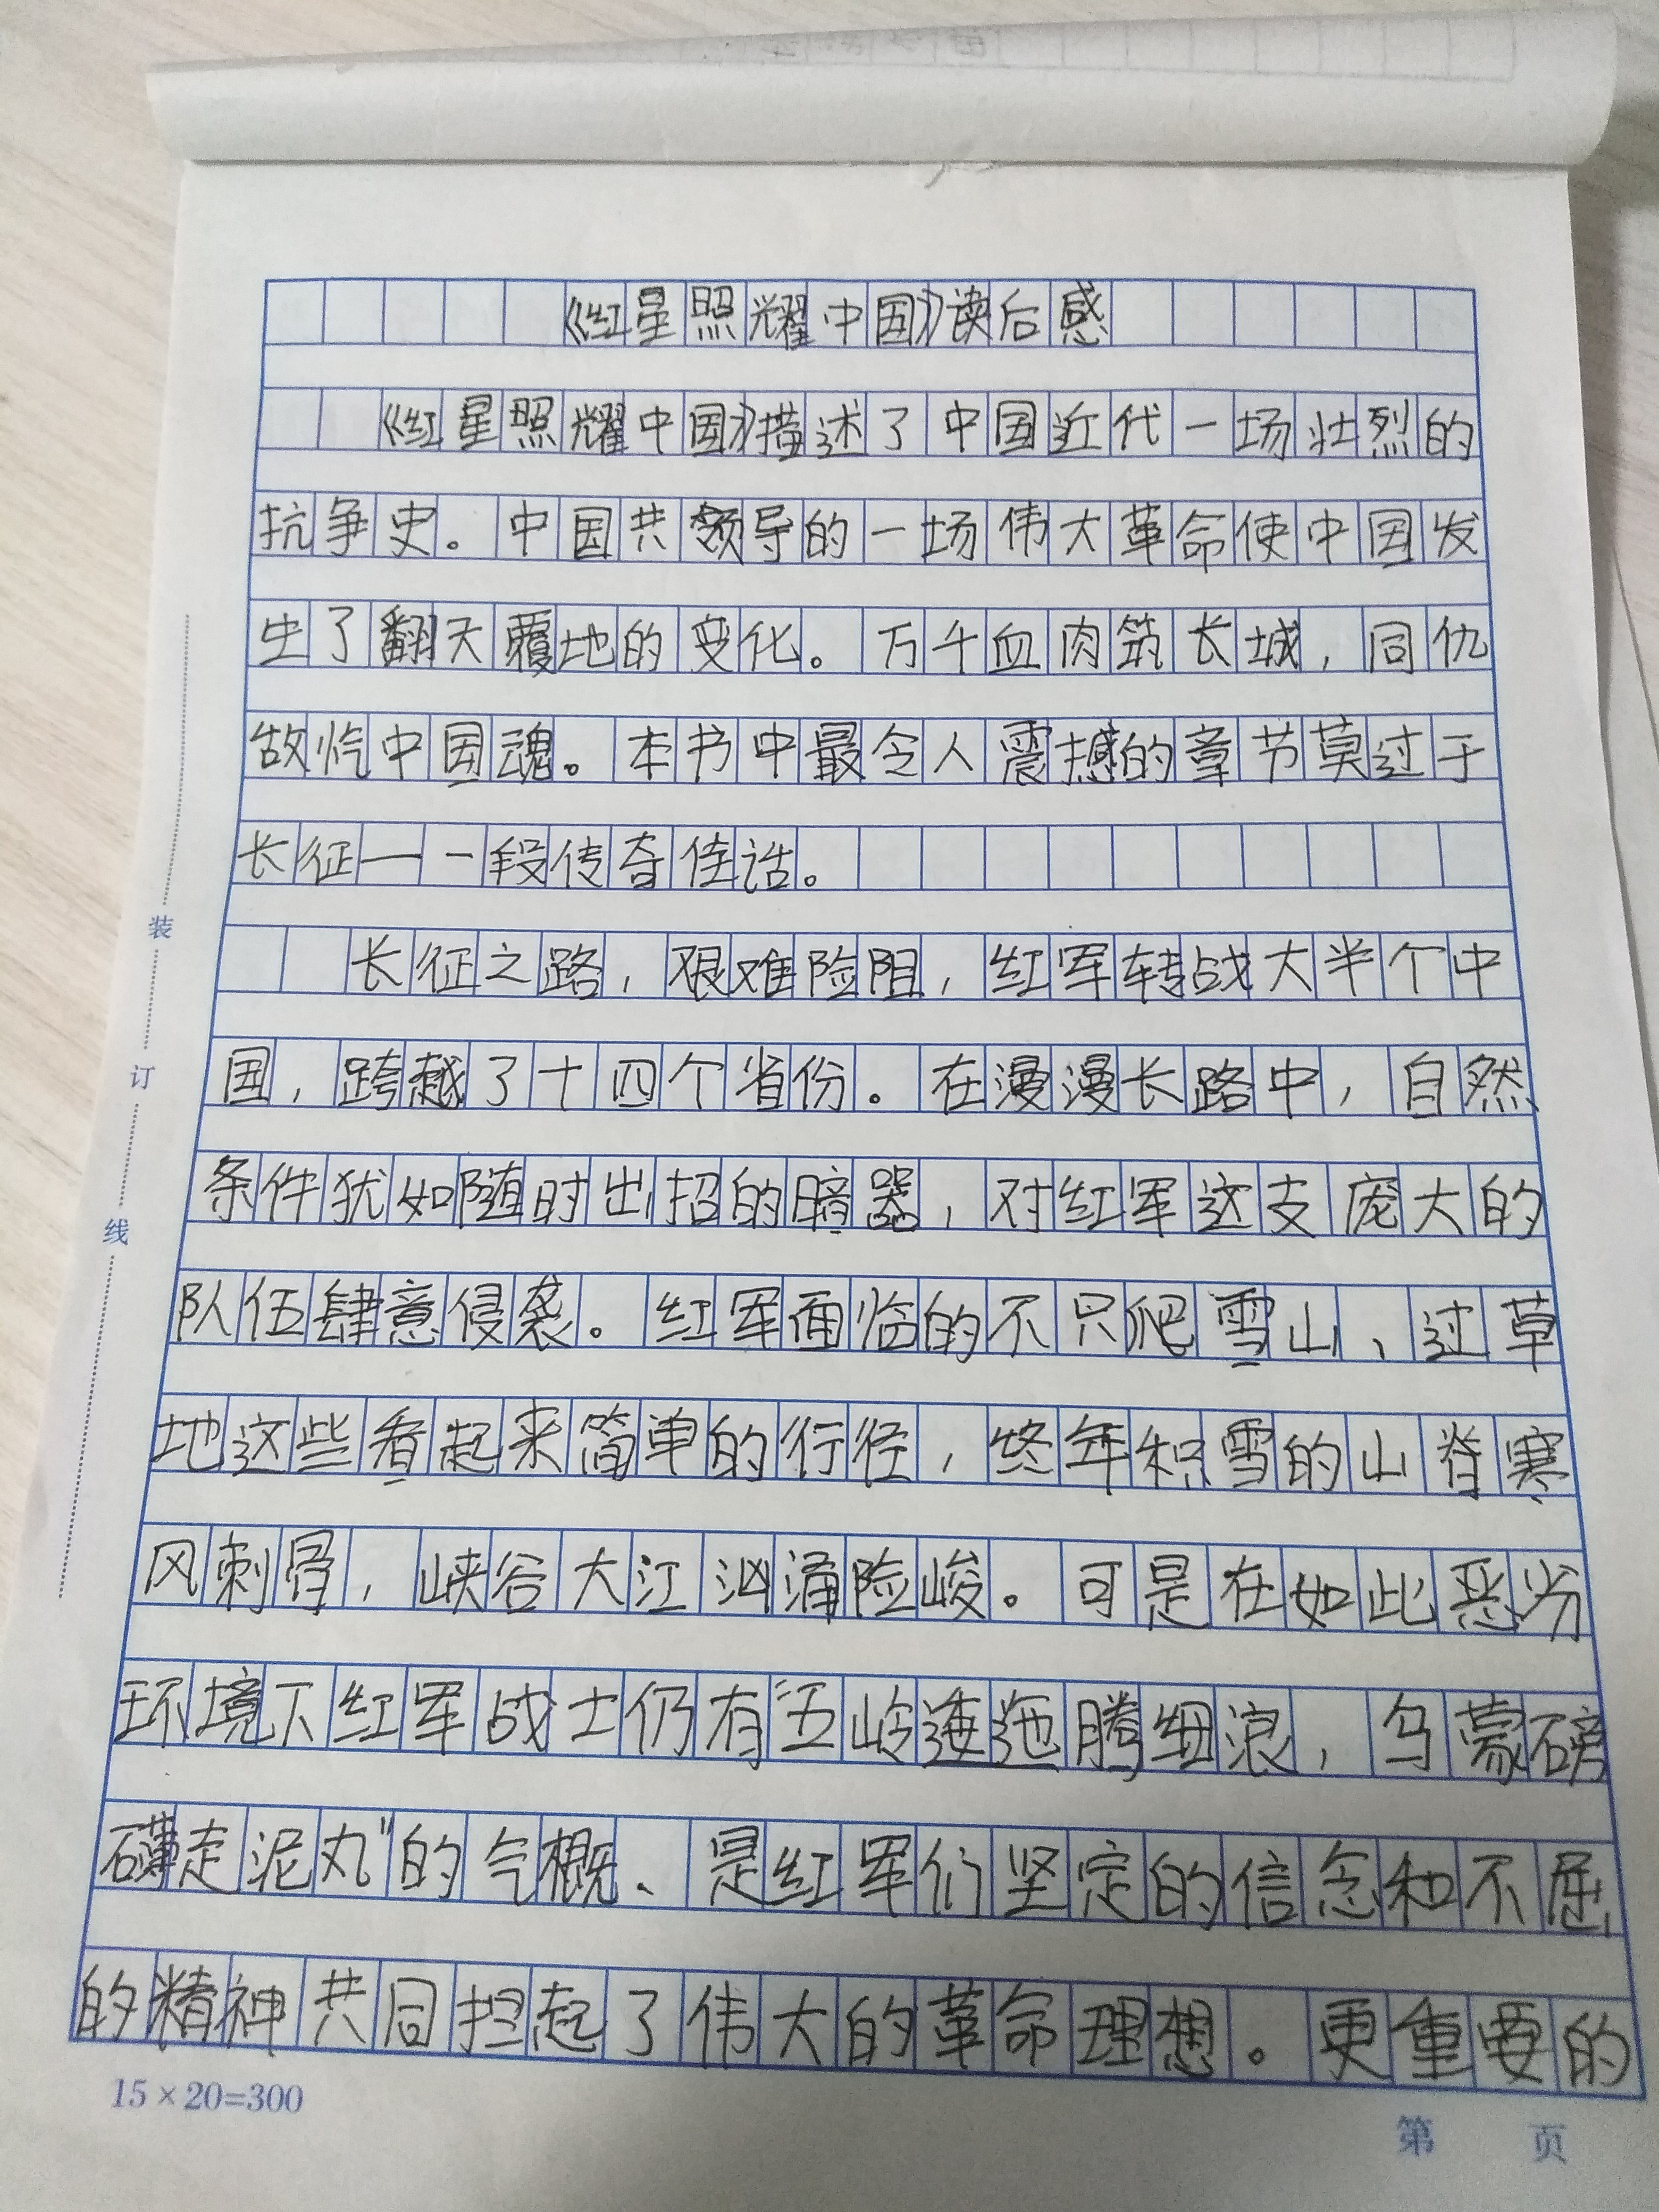 《红星照耀中国》读后感
《红星照耀中国》描述了中国近代一场壮烈的
抗争史。中国共领导的一场伟大革命使中国发
生了翻天覆地的变化。万千血肉筑长城，同仇
敌忾中国魂。本书中最令人震撼的章节莫过于
长征——一段传奇佳话。
长征之路，艰难险阻，红军转战大半个中
国，跨越了十四个省份。在漫漫长路中，自然
条件犹如随时出招的暗器，对红军这支庞大的
队伍肆意侵袭。红军面临的不只爬雪山、过草
地这些看起来简单的行径，终年积雪的山脊寒
风刺骨，峡谷大江汹涌险峻。可是在如此恶劣
环境下红军战士仍有“五岭逶迤腾细浪，乌蒙磅
礴走泥丸”的气概、是红军们坚定的信念和不屈
的精神共同担起了伟大的革命理想。更重要的
装
订
线
15×20=300
第 页